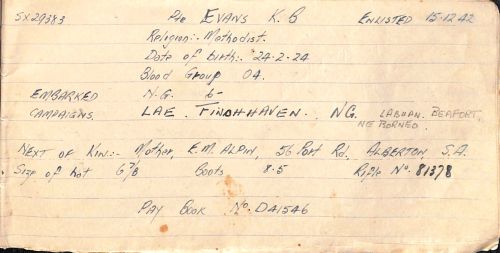 SX29383 Pte EVANS K. G ENLISTED 15.12.42
Religion:- Methodist.
Date of birth:- 24-2-24
Blood Group O4.
EMBARKED N.G.
CAMPAIGNS LAE. FINCHHAVEN. N.G. LABUAN. BEAFORT,
NE BORNEO.
NEXT OF Kin:- Mother, E.M. ALPIN, 56 Port Rd, ALBERTON, S.A.
Size of hat 6 7/8 Boots 8.5 Rifle No. 81378
PAY BOOK No. D41546